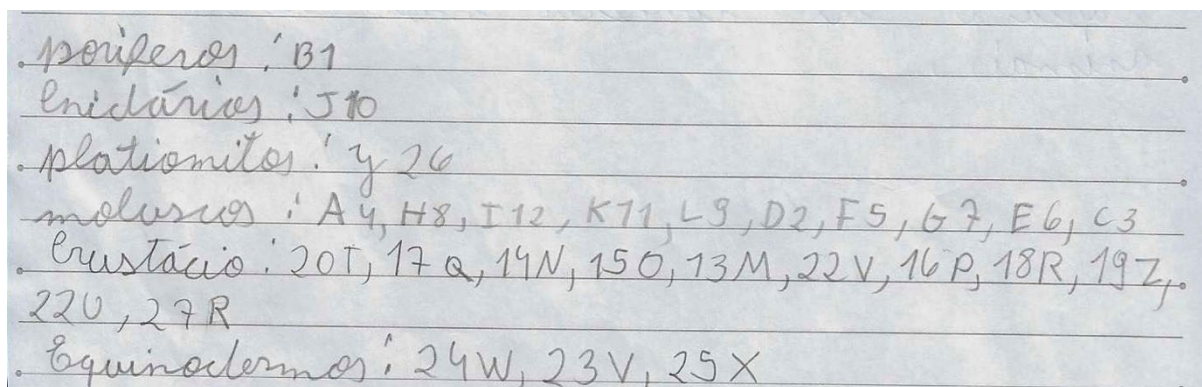 . poríferos : B1
Cnidários : J10
. platiomitos : y 26
moluscos : A4, H8, I12, K11, L9, D2, F5, G7, E6, C3
. Crustácio : 20T, 17Q, 14N, 15O, 13M, 22V, 16P, 18R, 19Z,
22U, 27R
. Equinodermos : 24W, 23V, 25X